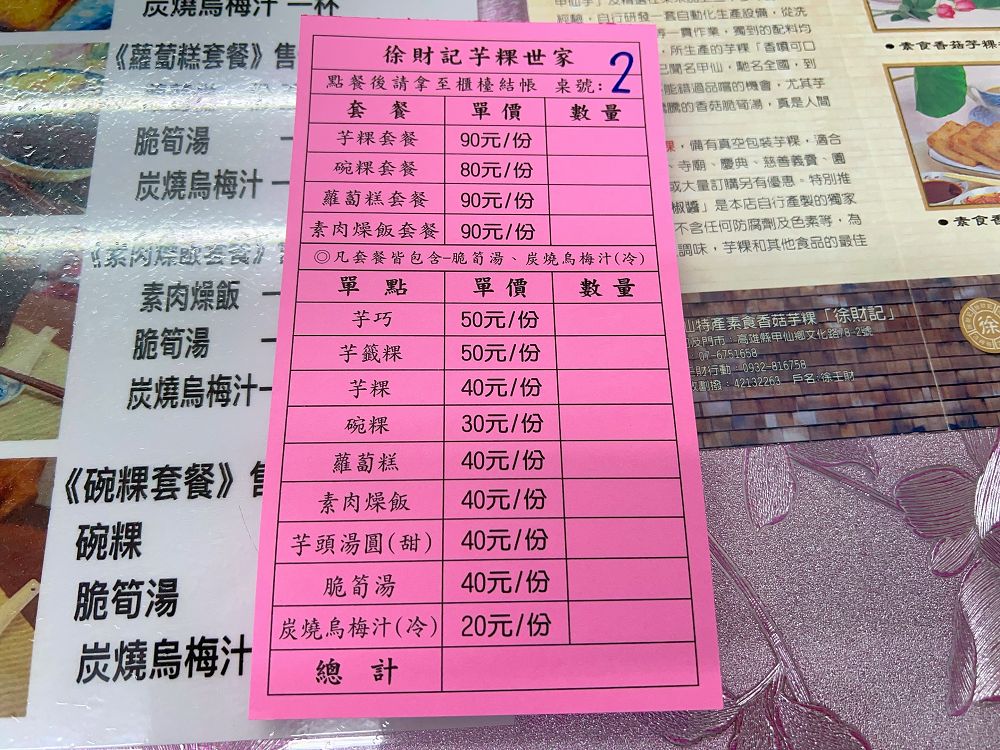 炭燒烏梅汁 一杯
《蘿蔔糕套餐》售
脆筍湯 一
炭燒烏梅汁 一
《素肉燥飯套餐》
素肉燥飯 一
脆筍湯 一
炭燒烏梅汁一
《碗粿套餐》售
碗粿
脆筍湯
炭燒烏梅汁
徐財記芋粿世家
點餐後請拿至櫃檯結帳 桌號: 2
套餐 單價 數量
芋粿套餐 90元/份
碗粿套餐 80元/份
蘿蔔糕套餐 90元/份
素肉燥飯套餐 90元/份
◎凡套餐皆包含-脆筍湯、炭燒烏梅汁(冷)
單點 單價 數量
芋巧 50元/份
芋籤粿 50元/份
芋粿 40元/份
碗粿 30元/份
蘿蔔糕 40元/份
素肉燥飯 40元/份
芋頭湯圓(甜) 40元/份
脆筍湯 40元/份
炭燒烏梅汁(冷) 20元/份
總計
經驗，自行研發一套自動化生產設備，從洗
一貫作業，獨到的配料均
，所生產的芋粿「香噴可口
已聞名甲仙，馳名全國，到
能錯過品嚐的機會，尤其芋
騰的香菇脆筍湯，真是人間
粿，備有真空包裝芋粿，適合
、寺廟、慶典、慈善義賣、園
或大量訂購另有優惠。特別推
椒醬」是本店自行產製的獨家
不含任何防腐劑及色素等，為
調味，芋粿和其他食品的最佳
山特產素食香菇芋粿「徐財記」
及門市：高雄縣甲仙鄉文化路78-2號
：07-6751658
財行動：0932-816758
政劃撥：42132263 戶名:徐王財
徐
• 素食香菇芋粿
• 素食香